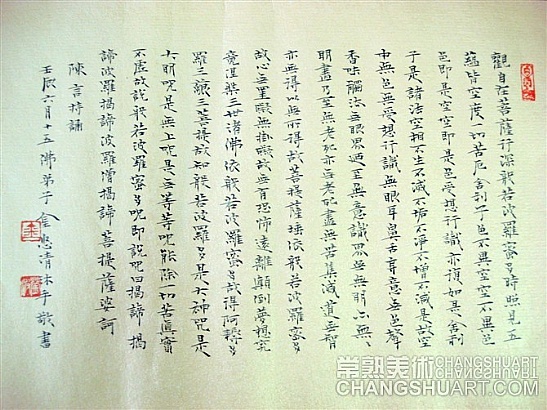 觀自在菩薩行深般若波羅蜜多時照見五
蘊皆空度一切苦厄舍利子色不異空空不異色
色即是空空即是色受想行識亦復如是舍利
子是諸法空相不生不滅不垢不淨不增不減是故空
中无色无受想行識无眼耳鼻舌身意无色聲
香味觸法无眼界乃至无意識界无无明亦无无
明盡乃至无老死亦无老死盡无苦集滅道无智
亦无得以无所得故菩提薩埵依般若波羅蜜多
故心无罣礙无掛礙故无有恐怖遠離顛倒夢想究
竟涅槃三世諸佛依般若波羅蜜多故得阿耨多
羅三藐三菩提故知般若波羅多是大神咒是
大明咒是无上咒是无等等咒能除一切苦真實
不虛故說般若波羅蜜多咒即說咒曰揭諦揭
諦波羅揭諦波羅僧揭諦菩提薩婆訶
陳言持誦
壬辰六月十五佛弟子金惠清沐手敬書
常熟美術
CHANGSHUART
CHANGSHUART.COM